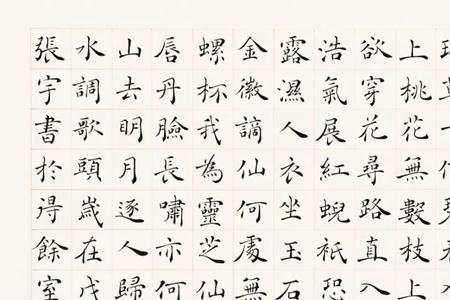 上桃花無數枝上
欲穿花尋路直入
浩氣展紅蜺祇恐
露濕人衣坐玉石
金徽謫仙何處無
螺杯我為靈芝仙
唇丹臉長嘯亦何
山去明月逐人歸
水調歌頭歲在戊
張宇書於得餘室